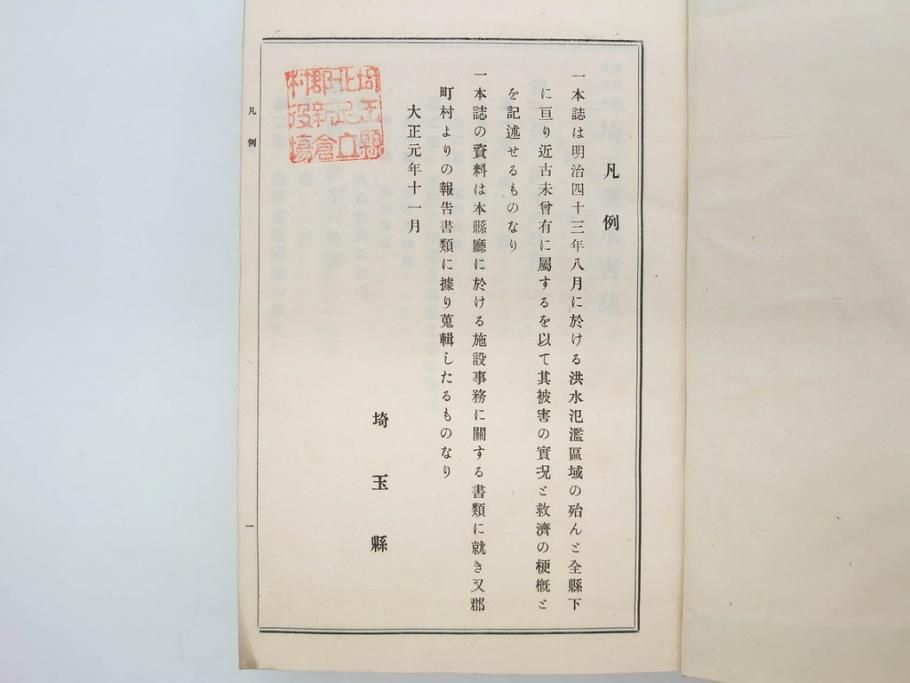 凡例
一本誌は明治四十三年八月に於ける洪水氾濫區域の殆んと全縣下
に亘り近古未曾有に屬するを以て其被害の實況と救濟の梗槪と
を記述せるものなり
一本誌の資料は本縣廳に於ける施設事務に關する書類に就き又郡
町村よりの報告書類に據り蒐輯したるものなり
大正元年十一月
埼玉縣
埼玉縣
北足立
郡新倉
村役場
凡例
一